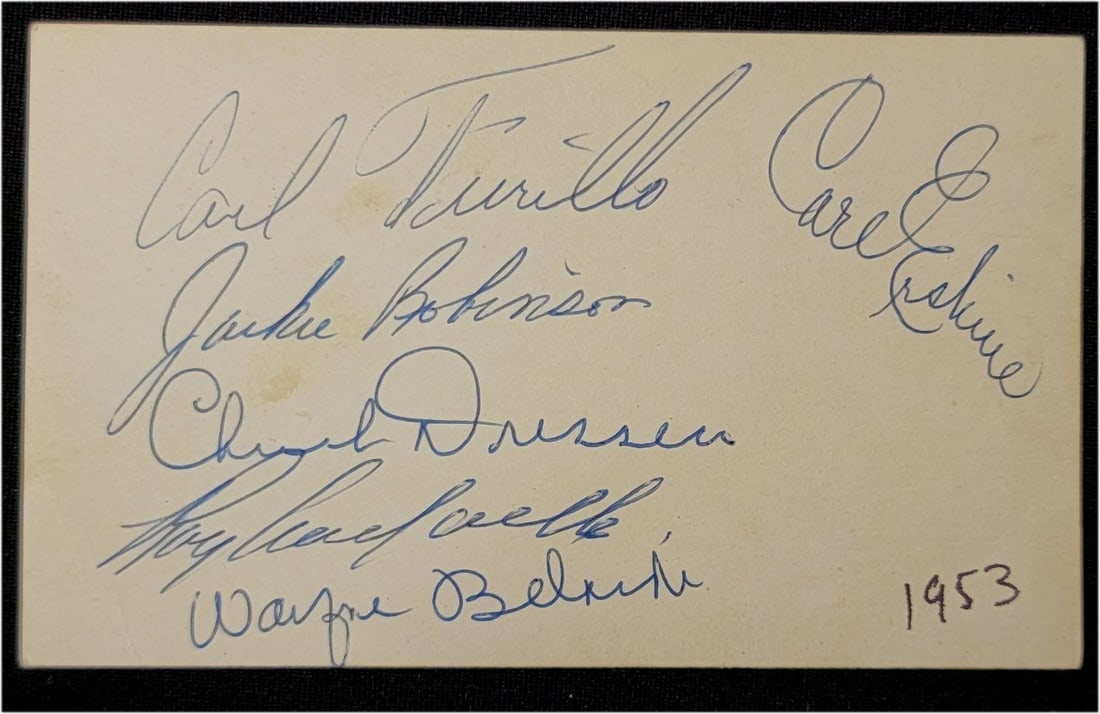 Carl Furillo
Carl Erskine
Jackie Robinson
Chuck Dressen
Roy Campanella
Wayne Belardi
1953